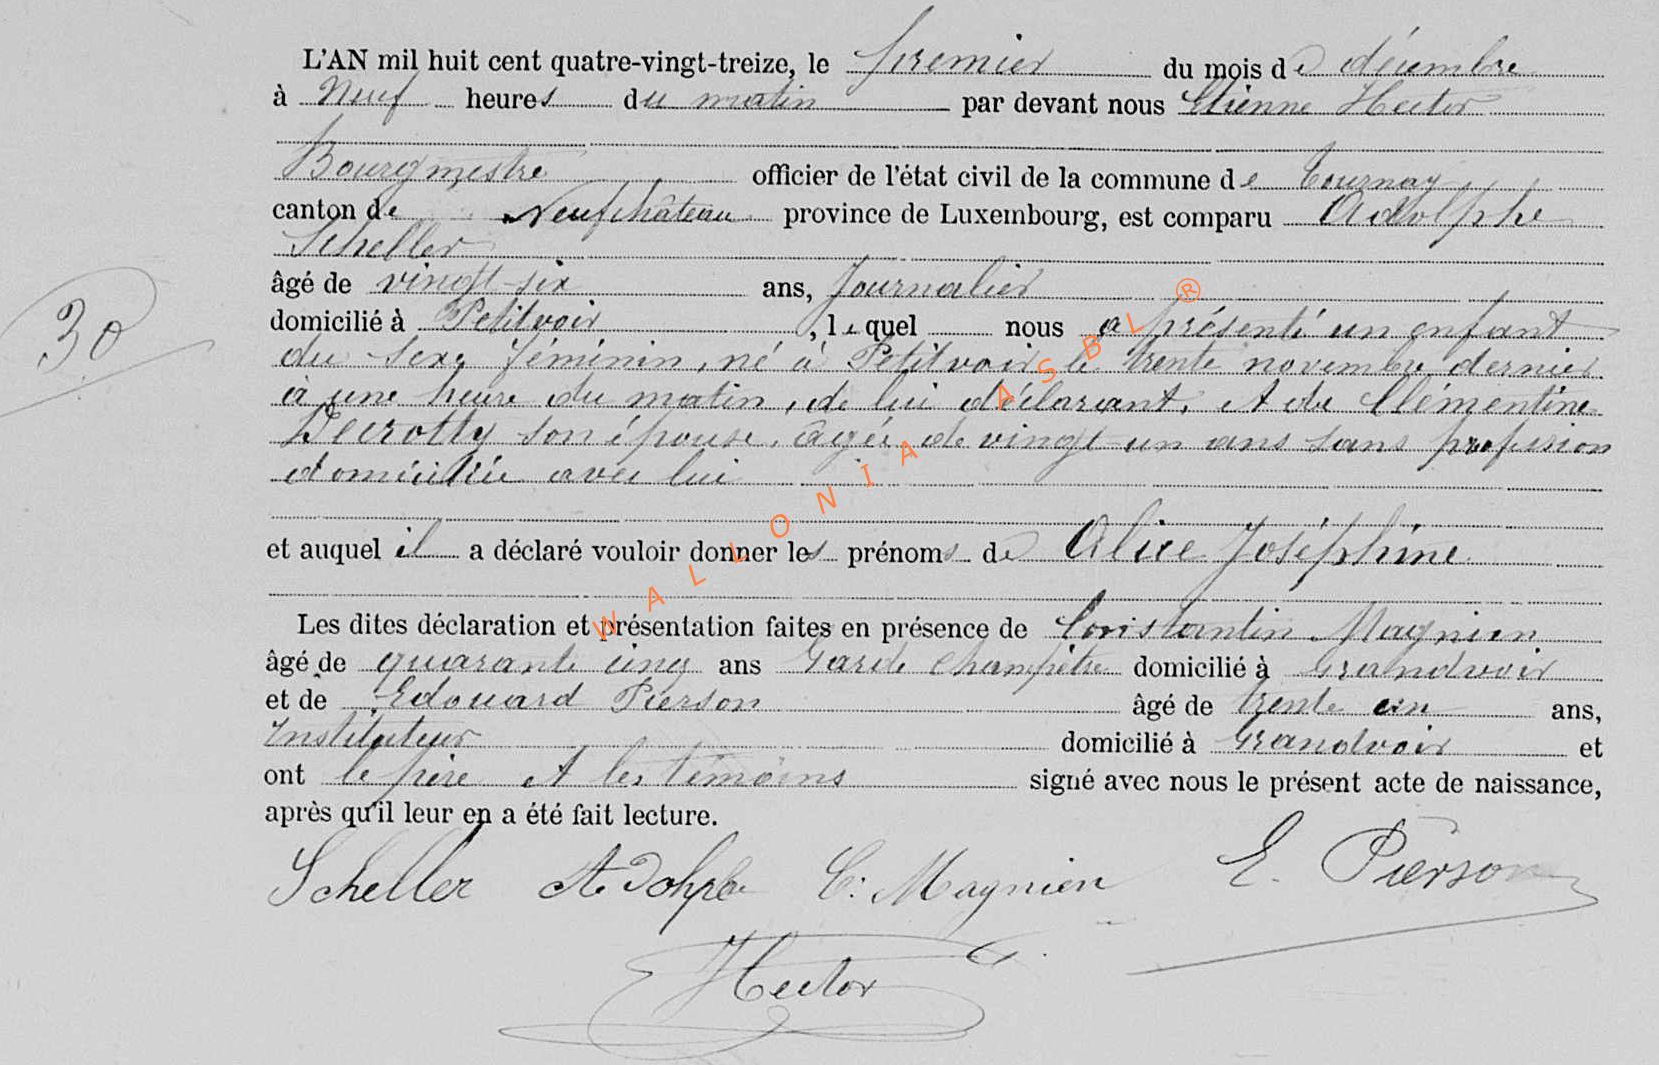 L'AN mil huit cent quatre-vingt-treize, le premier du mois de décembre
à Neuf heures du matin par devant nous Etienne Hector
Bourgmestre officier de l'état civil de la commune de Tournay
canton de Neufchâteau province de Luxembourg, est comparu Adolphe
Scheller
âgé de vingt-six ans, Journalier
domicilié à Petitvoir, lequel nous a présenté un enfant
du sexe féminin, né à Petitvoir le trente novembre dernier
à une heure du matin, de lui déclarant, et de Clémentine
Decrotty son épouse, âgée de vingt-un ans sans profession
domiciliée avec lui
30
et auquel il a déclaré vouloir donner les prénoms de Alice Joséphine
Les dites déclaration et présentation faites en présence de Constantin Magnien
âgé de quarante cinq ans Garde champêtre domicilié à Grandvoir
et de Edouard Pierson âgé de trente un ans,
Instituteur domicilié à Grandvoir et
ont le père et les témoins signé avec nous le présent acte de naissance,
après qu'il leur en a été fait lecture.
Scheller Adolphe C. Magnien E. Pierson
Hector
WALLONIA ASBL ®